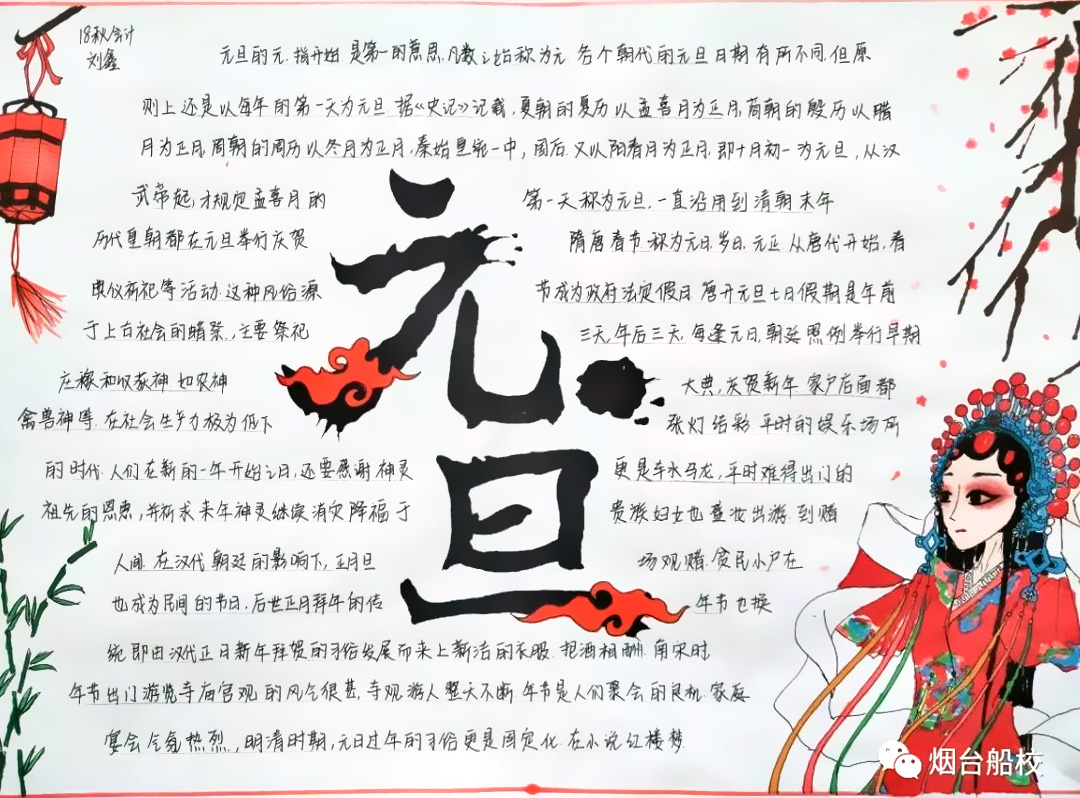 18秋会计
刘鑫
元旦的元.指开始 是第一的意思.凡数之始称为元 各个朝代的元旦日期有所不同.但原
则上还是以每年的第一天为元旦 据《史记》记载,夏朝的夏历以孟喜月为正月,商朝的殷历以腊
月为正月.周朝的周历以冬月为正月,秦始皇统一中,国后.又以阳春月为正月.即十月初一为元旦,从汉
武帝起,才规定孟喜月的 第一天称为元旦,一直沿用到清朝末年
历代皇朝都在元旦举行庆贺 隋唐春节.称为元日.岁日.元正 从唐代开始,春
典仪祈祀等活动.这种风俗源 节成为政府法定假日.唐开元旦七日假期是年前
于上古社会的蜡祭.,主要祭祀 三天,年后三天,每逢元日,朝廷照例举行早期
庄稼和收获神 如农神 大典,庆贺新年 家户后面都
禽兽神等.在社会生产力极为低下 张灯结彩 平时的娱乐场所
的时代.人们在新的一年开始之日,还要感谢神灵 更是车水马龙,平时难得出门的
祖先的恩惠,并祈求来年神灵继续消灾降福于 贵族妇女也盛妆出游.到赌
人间.在汉代朝廷的影响下,正月旦 场观赌.贫民小户在
也成为民间的节日,后世正月拜年的传 年节也换
统即由汉代正日新年拜贺的习俗发展而来上新洁的衣服.把酒相酬.南宋时
年节出门游览寺庙宫观 的风气很甚,寺观游人整天不断 年节是人们聚会的良机 家庭
宴会气氛热烈.,明清时期,元日过年的习俗更是固定化.在小说红楼梦
元旦
烟台船校